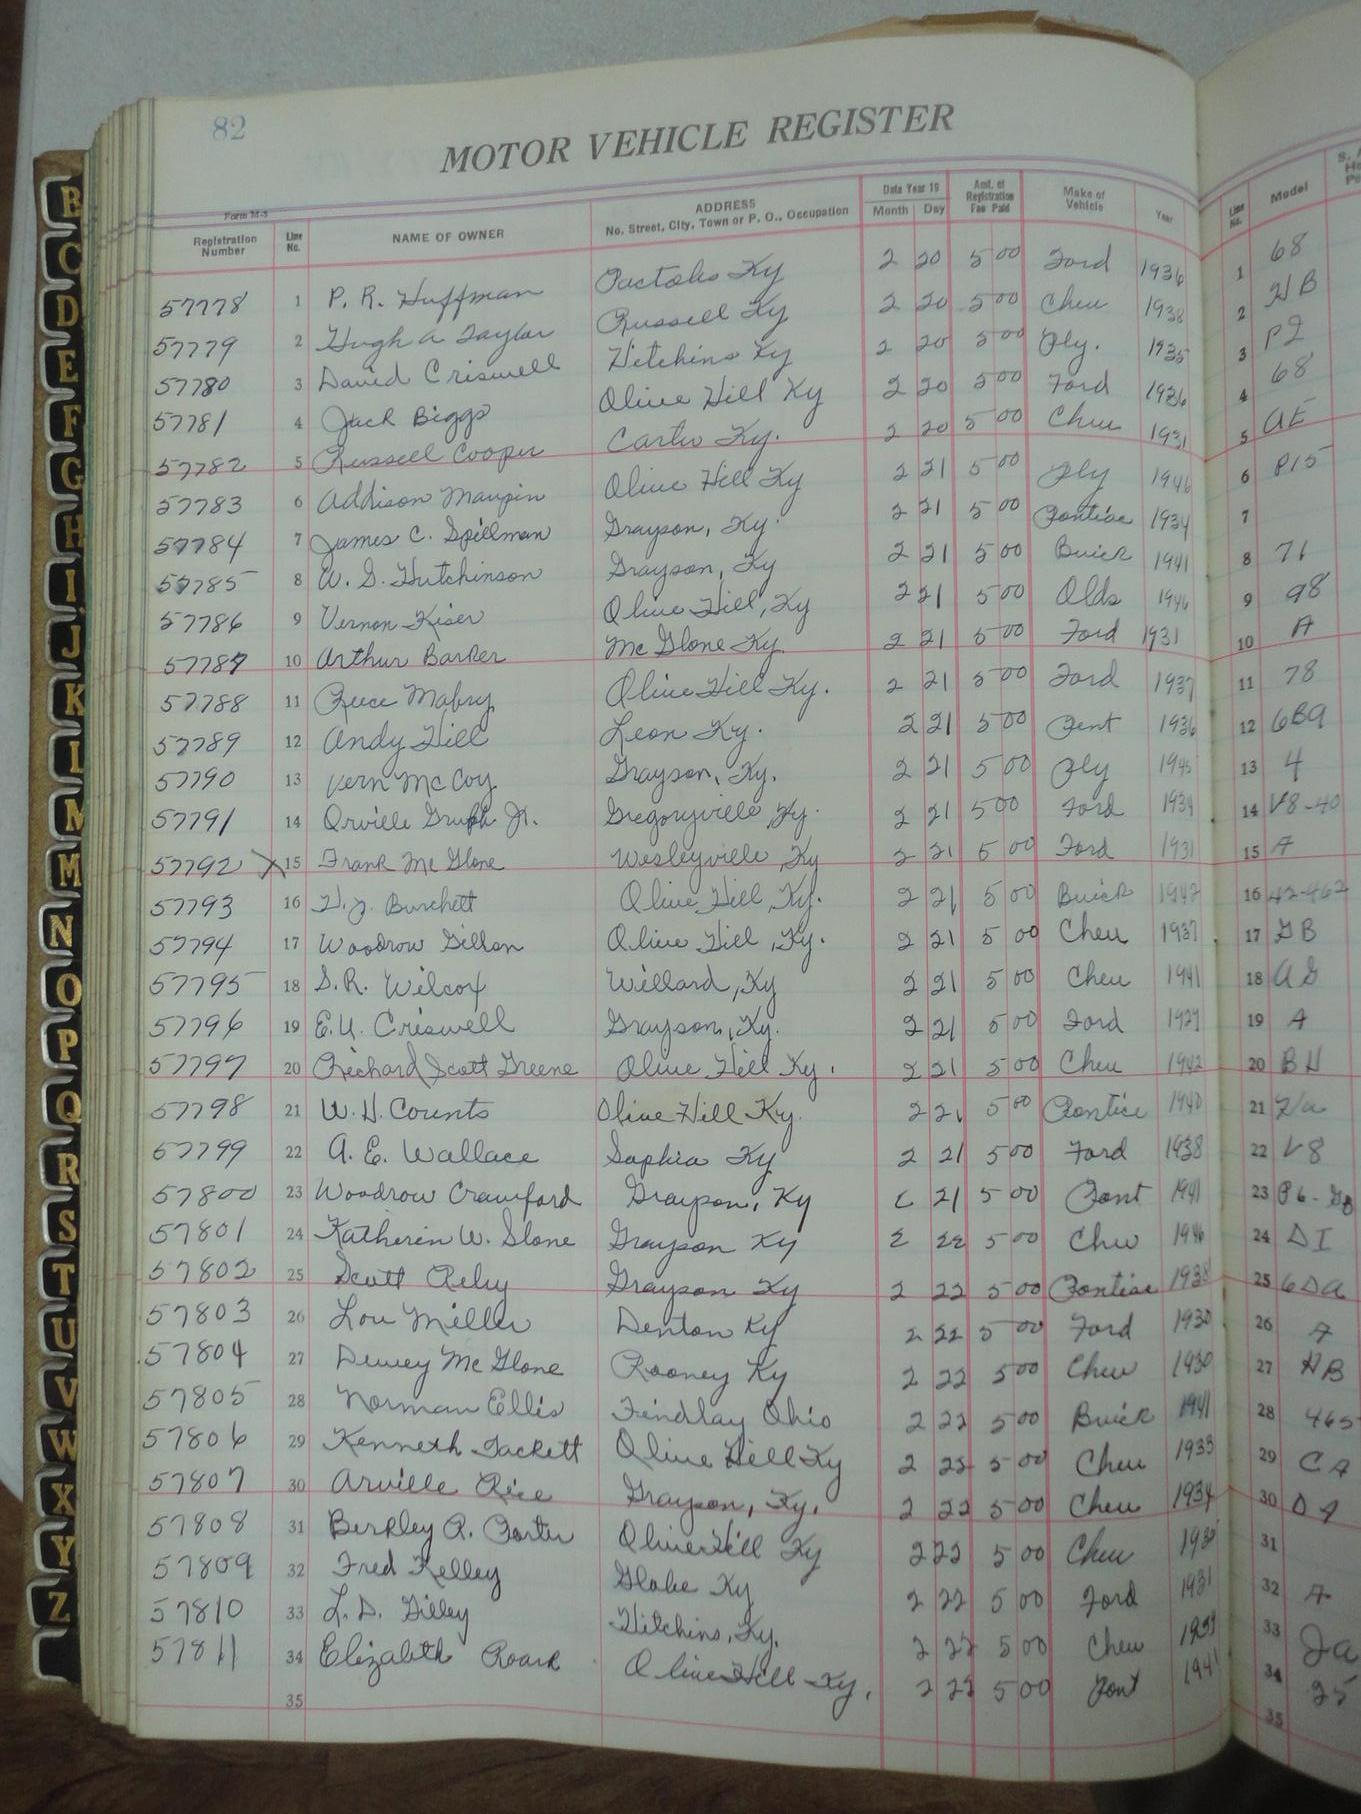 82
MOTOR VEHICLE REGISTER
Form M-3
Registration Number Line No. NAME OF OWNER ADDRESS No. Street, City, Town or P. O., Occupation Date Year 19 Month Day Amt. of Registration Fee Paid Make of Vehicle Year Line No. Model
57778 1 P. R. Huffman Pactolus Ky 2 20 5 00 Ford 1936 1 68
57779 2 Hugh A Taylor Russell Ky 2 20 5 00 Chev 1938 2 HB
57780 3 David Criswell Hitchins Ky 2 20 5 00 Ply. 1935 3 PJ
57781 4 Jack Biggs Olive Hill Ky 2 20 5 00 Ford 1936 4 68
57782 5 Russell Cooper Carter Ky. 2 20 5 00 Chev 1931 5 AE
57783 6 Addison Maupin Olive Hill Ky 2 21 5 00 Ply 1946 6 P15
57784 7 James C. Spillman Grayson, Ky. 2 21 5 00 Pontiac 1934 7
57785 8 W. G. Hutchinson Grayson, Ky 2 21 5 00 Buick 1941 8 71
57786 9 Vernon Kiser Olive Hill, Ky 2 21 5 00 Olds 1946 9 98
57787 10 Arthur Barker Mc Glone Ky. 2 21 5 00 Ford 1931 10 A
57788 11 Reece Mabry Olive Hill Ky. 2 21 5 00 Ford 1937 11 78
57789 12 Andy Hill Leon Ky. 2 21 5 00 Pont 1936 12 6BA
57790 13 Vern McCoy Grayson, Ky. 2 21 5 00 Ply 13 4
57791 14 Orville Jr. Gregoryville, Ky. 2 21 5 00 Ford 1934 14 V8-40
57792 X 15 Frank Mc Glone Wesleyville, Ky 2 21 5 00 Ford 1931 15 A
57793 16 H. J. Burchett Olive Hill, Ky. 2 21 5 00 Buick 1942 16 42-462
57794 17 Woodrow Gillon Olive Hill, Ky. 2 21 5 00 Chev 1937 17 GB
57795 18 S. R. Wilcox Willard, Ky 2 21 5 00 Chev 1941 18 AG
57796 19 E. U. Criswell Grayson, Ky. 2 21 5 00 Ford 1929 19 A
57797 20 Richard Scott Greene Olive Hill Ky. 2 21 5 00 Chev 1942 20 BH
57798 21 W. H. Counts Olive Hill Ky. 2 21 5 00 Pontiac 1940 21 Ha
57799 22 A. E. Wallace Sophia Ky 2 21 5 00 Ford 1938 22 V8
57800 23 Woodrow Crawford Grayson, Ky 2 21 5 00 Pont 1941 23
57801 24 Katherin W. Slone Grayson Ky 2 22 5 00 Chev 1946 24 DI
57802 25 Scott Reby Grayson Ky 2 22 5 00 Pontiac 1938 25 6DA
57803 26 Lou Miller Denton Ky 2 22 5 00 Ford 1930 26 A
57804 27 Dewey Mc Glone Rooney Ky 2 22 5 00 Chev 1930 27
57805 28 Norman Ellis Findlay Ohio 2 22 5 00 Buick 1941 28 465
57806 29 Kenneth Tackett Olive Hill Ky 2 22 5 00 Chev 1933 29 CA
57807 30 Arville Rice Grayson, Ky. 2 22 5 00 Chev 1934 30 DA
57808 31 Berkley R. Porter Olive Hill Ky 2 22 5 00 Chev 31
57809 32 Fred Kelley Globe Ky 2 22 5 00 Ford 1931 32 A
57810 33 L. D. Gilley Hitchins, Ky. 2 22 5 00 Chev 1939 33 Ja
57811 34 Elizabeth Roark Olive Hill Ky. 2 22 5 00 Pont 1941 34 25
35 35
B
C
D
E
F
G
H
I
J
K
L
M
M
N
O
P
Q
R
S
T
U
V
W
X
Y
Z